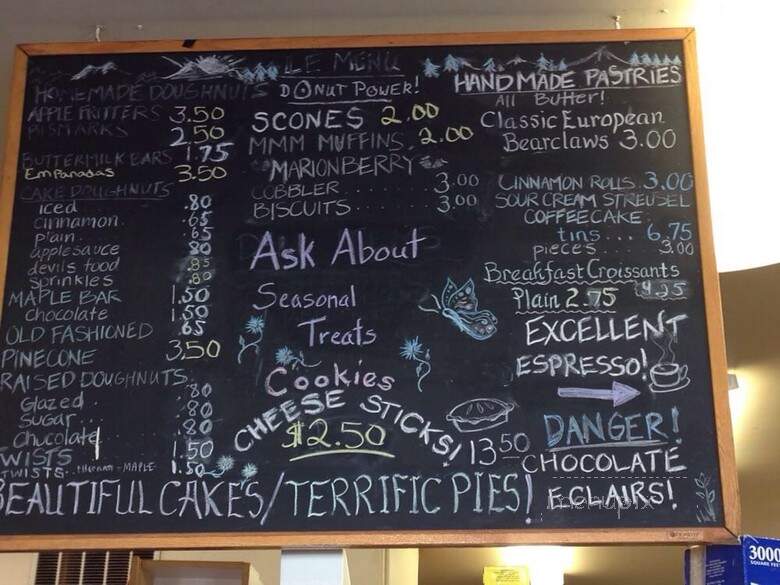 LE MENU
HOMEMADE DOUGHNUTS
APPLE FRITTERS 3.50
BISMARKS 2.50
BUTTERMILK BARS 1.75
Empanadas 3.50
CAKE DOUGHNUTS
iced .80
cinnamon .65
plain .65
applesauce .80
devils food .85
sprinkles .80
MAPLE BAR 1.50
chocolate 1.50
OLD FASHIONED .65
PINECONE 3.50
RAISED DOUGHNUTS
Glazed .80
Sugar .80
Chocolate .80
TWISTS 1.50
TWISTS MAPLE 1.50
DONUT POWER!
SCONES 2.00
MMM MUFFINS. 2.00
MARIONBERRY
COBBLER 3.00
BISCUITS 3.00
Ask About
Seasonal
Treats
Cookies
CHEESE STICKS!
$2.50
1350
HANDMADE PASTRIES
All Butter!
Classic European
Bearclaws 3.00
CINNAMON ROLLS. 3.00
SOUR CREAM STREUSEL
COFFEECAKE
tins... 6.75
pieces 3.00
Breakfast Croissants
4.25
Plain 2.75
EXCELLENT
ESPRESSO!
DANGER!
CHOCOLATE
ECLAIRS!
BEAUTIFUL CAKES/TERRIFIC PIES!
menupix
3000
SQUARE FEET